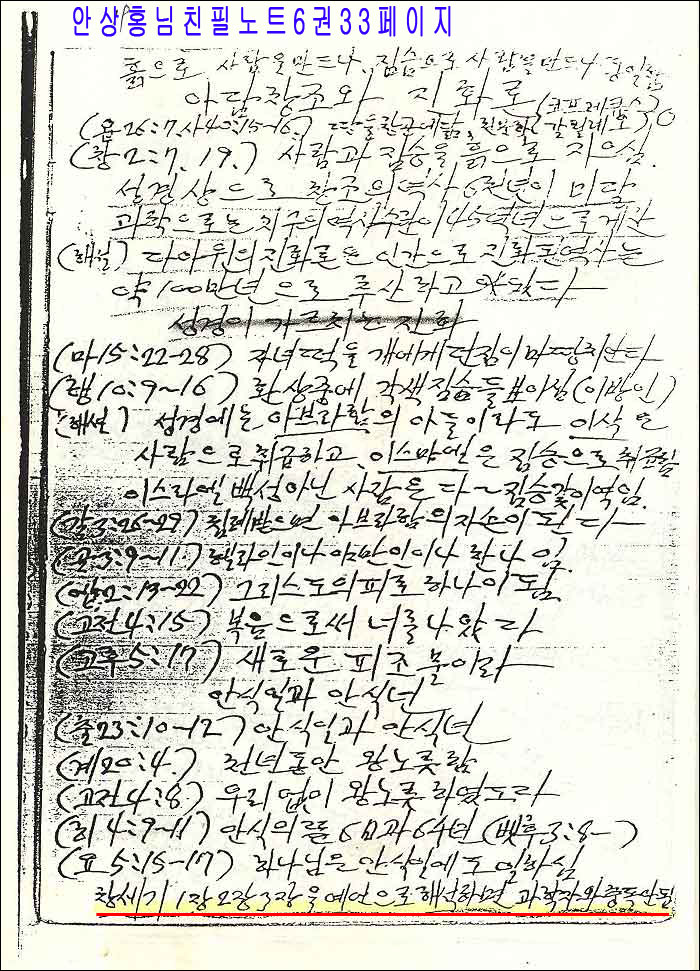 안샹홍님친필노트6권33페이지
흙으로 사람을 만드나, 짐승으로 사람을 만드나 동일함
아담창조와 진화론
(욥26:7, 사40:15-16.)
(창2:7, 19.) 사람과 짐승을 흙으로 지으심.
성경상으로 창조의역사 6천년이 미달
과학으로는 지구의역사 45억년으로 계산
(해설) 다아윈의 진화론은 인간으로 진화된역사는
약 100만년으로 추산하고 있다
성경이 가르치는 진화
(마15:22-28) 자녀떡을 개에게 던짐이 마땅치안타
(행10:9~16) 환상중에 각색짐승들 보이심 (이방인)
(해설) 성경에는 아브라함의 아들이라도 이삭은
사람으로취급하고, 이스마엘은 짐승으로 취급됨
이스라엘 백성아닌 사람은 다~짐승같이여김.
(갈3:26-29) 침례받으면 아브라함의 자손이 된다
(골3:9~11.) 헬라인이나 야만인이나 하나임.
(엡2:13-22) 그리스도의피로 하나이됨
(고전4:15) 복음으로써 너를나았다
(고후5:17) 새로운 피조물이라
안식일과 안식년
(출23:10-12) 안식일과 안식년
(계20:4.) 천년동안 왕노릇함
(고전4:8) 우리없이 왕노릇하였도다
(히4:9~11) 안식의 6일과 6천년 (벳후3:8-)
(요5:15-17) 하나님은 안식일에도 일하심
창세기 1장2장3장을예언으로해석하면 과학자와 충돌안됨